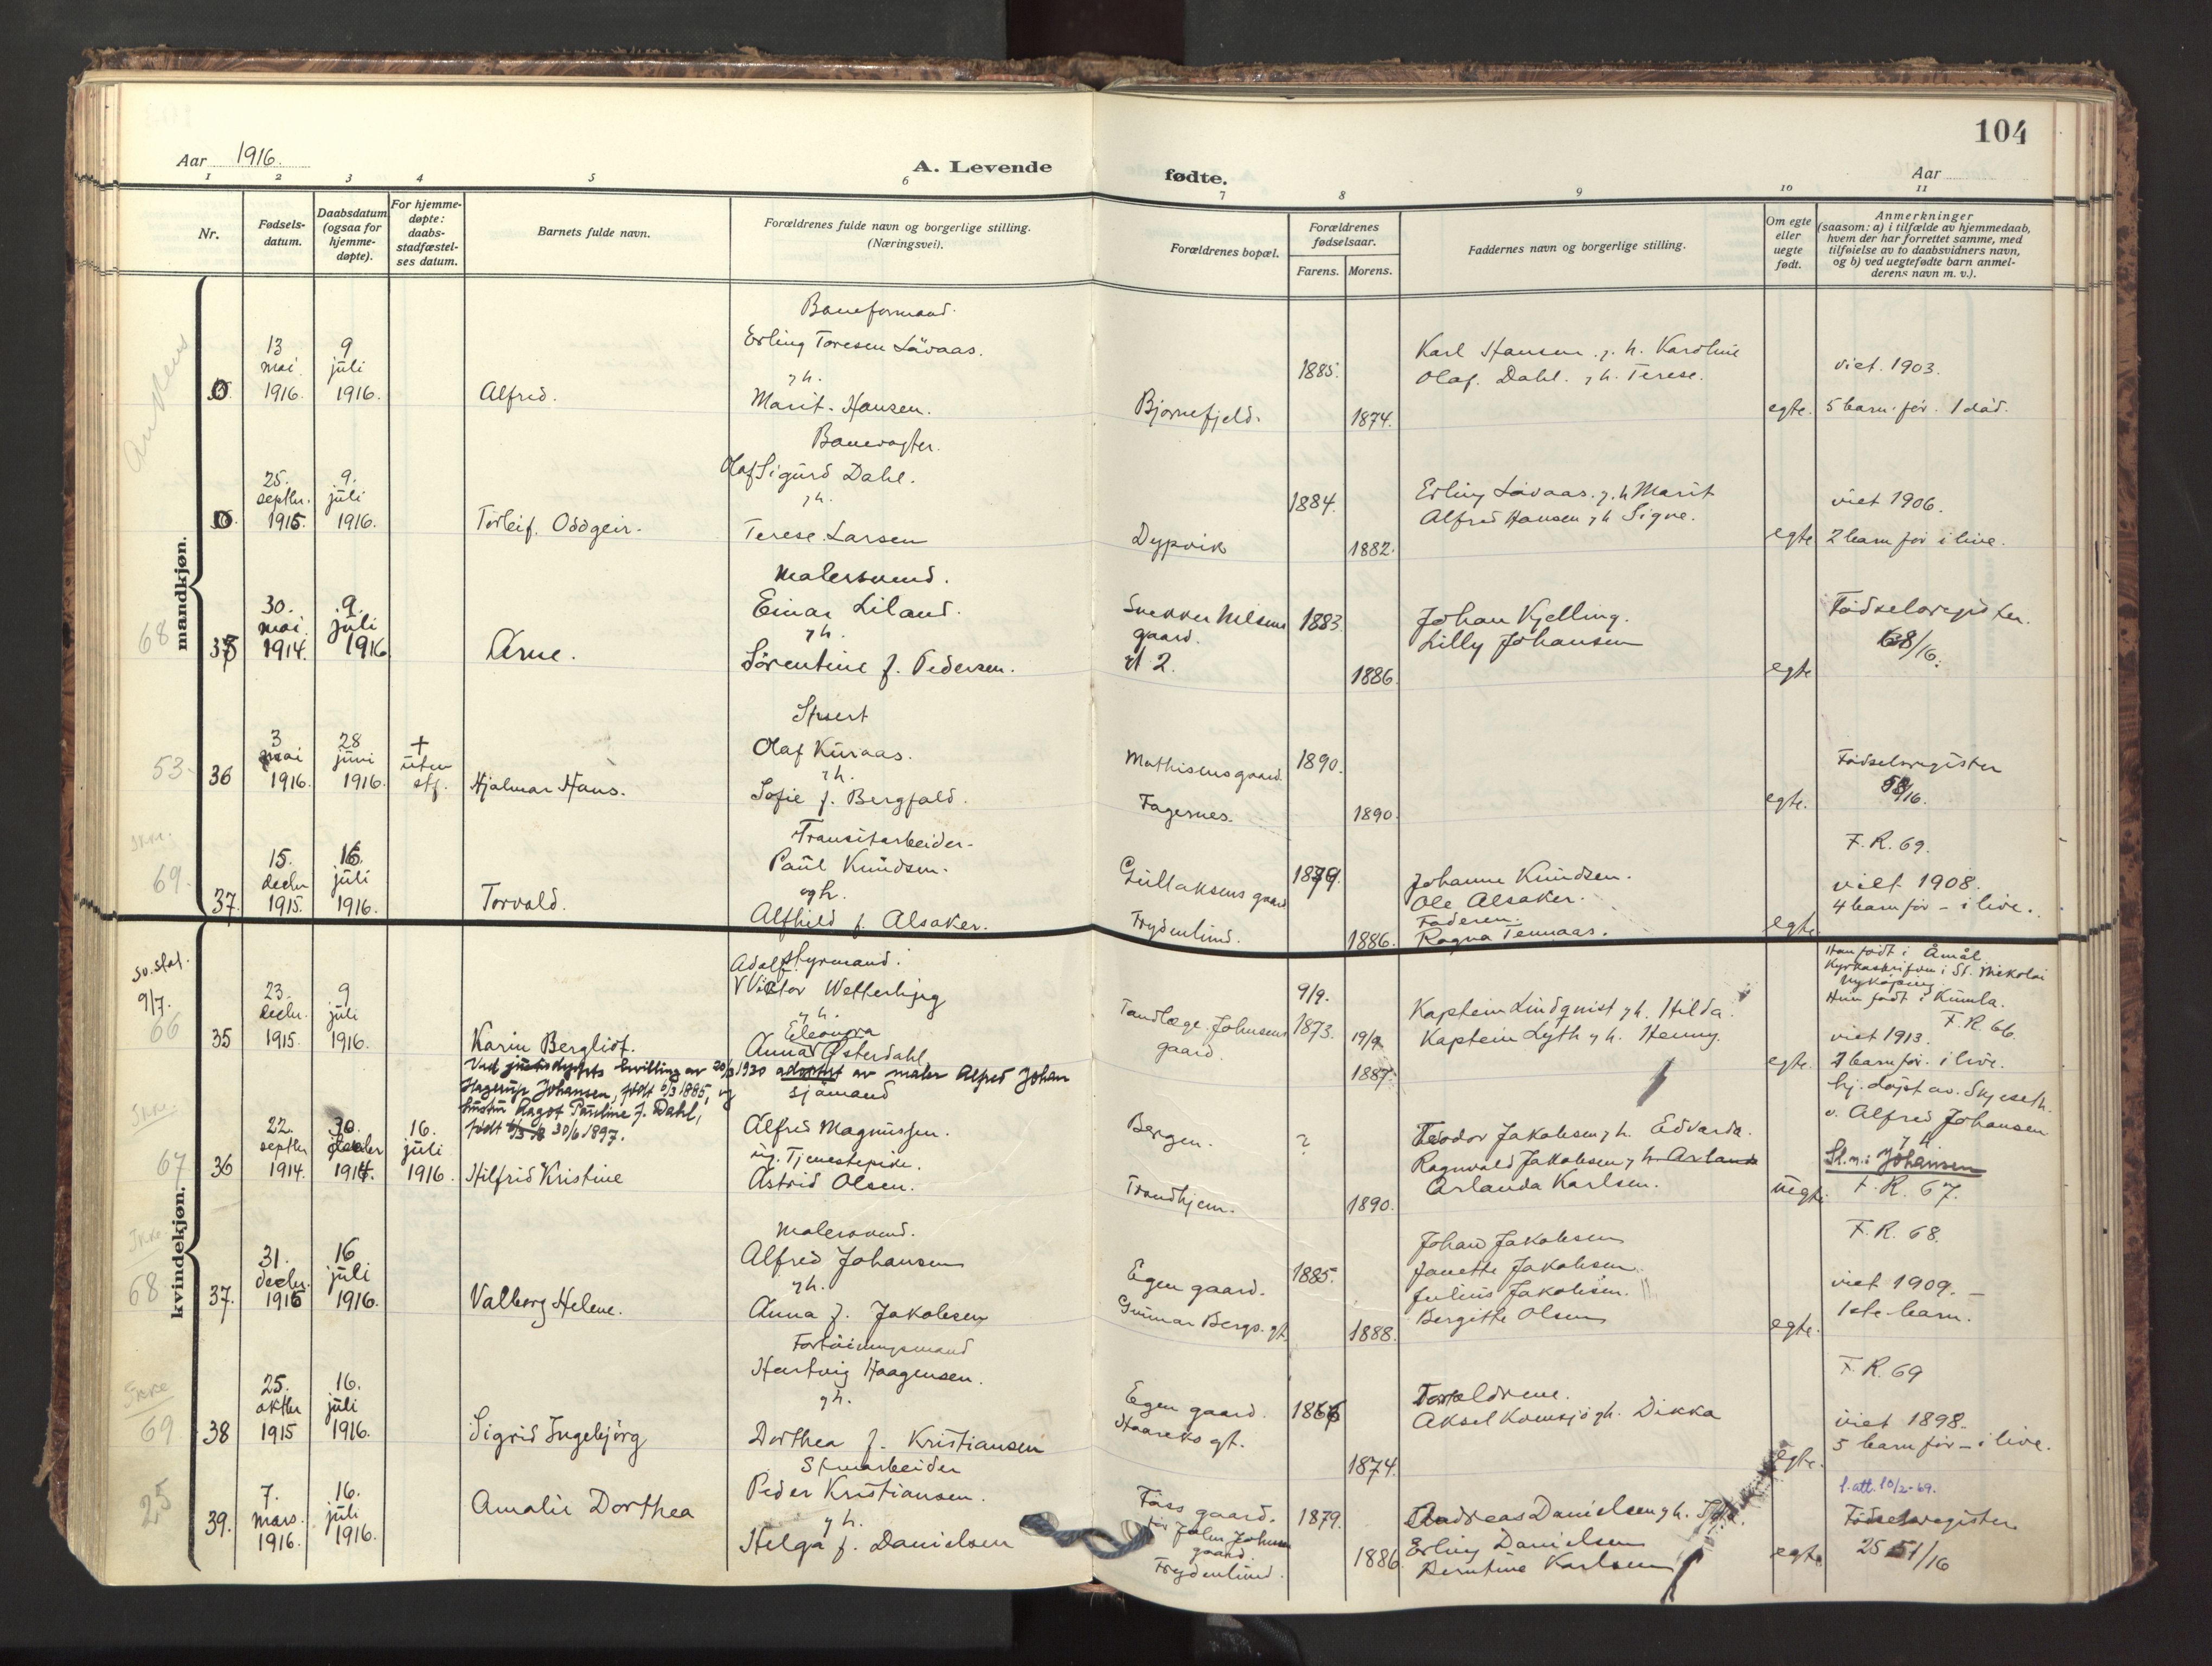 104
Aar 1916.
A. Levende
fødte.
Aar
1 2 3 4 5 6 7 8 9 10 11
Nr.
Fødsels-
datum.
Daabsdatum
(ogsaa for
hjemme-
døpte).
For hjemme-
døpte:
daabs-
stadfæstel-
ses datum.
Barnets fulde navn.
Forældrenes fulde navn og borgerlige stilling.
(Næringsvei).
Forældrenes bopæl.
Forældrenes
fødselsaar.
Farens. Morens.
Faddernes navn og borgerlige stilling.
Om egte
eller
uegte
født.
Anmerkninger
(saasom: a) i tilfælde av hjemmedaab,
hvem der har forrettet samme, med
tilføielse av to daabsvidners navn,
og b) ved uegtefødte barn anmel-
derens navn m. v.).
mandkjøn.
0
13
mai
1916.
9
juli
1916.
Alfred.
Baneformand.
Erling Toresen Lövaas.
gh.
Marit Hansen.
Bjørnefjeld.
1885.
1874.
Karl Hansen gh. Karoline
Olaf Dahl. gh. Terese.
egte.
viet. 1903.
5 barn før. 1 död.
0
25.
septbr.
1915.
9.
juli
1916.
Torleif Oddgeir.
Banevogter.
Olaf Sigurd Dahl.
gh.
Terese Larsen
Dypvik
1884.
1882.
Erling Lövaas. gh Marit
Alfred Hansen gh Signe.
egte
viet 1906.
2 barn før i live.
68
35
30.
mai
1914.
9.
juli
1916
Arne.
Malersvend.
Einar Liland.
gh.
Sørentine f. Pedersen.
Snekker Nilsens
gaard.
rl 2.
1883
1886.
Johan Kjelling.
Lilly Johansen
egte
Fødselsregister.
68/16.
53
36
3
mai
1916.
28
juni
1916.
†
uten
stf.
Hjalmar Hans.
Stuert
Olaf Kuraas.
gh.
Sofie f. Bergfald.
Mathisensgaard.
Fagernes.
1890.
1890.
egte.
Fødselsregister
53/16.
69.
37.
15.
decbr
1915.
16.
juli
1916.
Torvald.
Transitarbeider.
Paul Knudsen.
ogh.
Alfhild f. Alsaker.
Gullaksens gaard
Frydenlund.
1879.
1886.
Johanne Knudsen.
Ole Alsaker.
Faderen.
Ragna Tennaas.
egte
F. R. 69.
viet 1908.
4 barn før - i live.
kvindekjøn.
9/7.
66
35
23.
decbr.
1915.
9
juli
1916.
Karin Bergliot.
Styrmand.
Adolf
Victor Wetterbjeg
gh.
Eleonora
Anna Østerdahl
Tandlæge Johnsens
gaard.
9/9.
1873.
19/9
1887.
Kaptein Lindqvist gh. Hilda.
Kaptein Lyth gh. Henny.
egte.
Han født i Åmål
Nykøping.
Hun født i Kumla.
F. R. 66.
viet 1913.
2 barn før. i live.
Ved justisdeptets bevilling av 20/3 1920 adoptert av maler Alfred Johan
Hagerup Johansen, født 5/3 1885, og
hustru Ragot Pauline f. Dahl,
født 30/6 1897.
67
36
22.
septbr
1914.
30.
decbr
1914.
16.
juli
1916.
Hilfrid Kristine
Sjömand
Alfred Magnussen.
ug. Tjenestepike.
Astrid Olsen.
Bergen.
Trondhjem.
?
1890.
Teodor Jakobsen gh. Edvarda.
Ragnvald Jakobsen gh. Arlanda
Arlanda Karlsen.
uegte.
hj. døpt av. Skjeseth.
v. Alfred Johansen
gh.
Johansen
F. R. 67.
Ikke
68
37.
31.
decbr.
1915
16
juli
1916.
Valborg Helene.
Malersvend.
Alfred Johansen
gh.
Anna f. Jakobsen
Egen gaard.
Gunnar Bergs. gt.
1885.
1888.
Johan Jakobsen
Janette Jakobsen.
Julius Jakobsen.
Bergitte Olsen
egte.
F. R. 68.
viet 1909.
1ste barn.
Ikke
69
38
25.
oktbr
1915
16.
juli
1916.
Sigrid Ingebjörg
Fortöiningsmand
Hartvig Haagensen.
gh.
Dorthea f. Kristiansen
Egen gaard.
Haareks gt.
1866
1874.
Forældrene.
Aksel Kvensjö gh. Dikka
egte.
F. R. 69
viet 1898.
5 barn før - i live.
25
39.
7.
mars.
1916.
16.
juli
1916.
Amalie Dorthea
Stuarbeider
Peder Kristiansen.
gh.
Helga f. Danielsen
Foss gaard.
gaard
Frydenlund.
1879.
1886
Andreas Danielsen gh.
Erling Danielsen
Berntine Karlsen
egte.
f. att. 10/2-69.
Fødselsregister
25 51/16